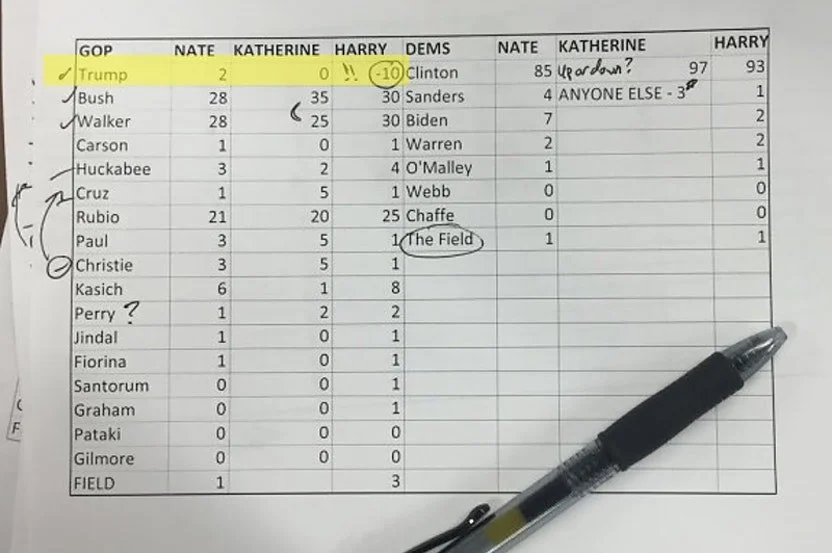 GOP NATE KATHERINE HARRY DEMS NATE KATHERINE HARRY
Trump 2 0 !! -10 Clinton 85 Up or down? 97 93
Bush 28 35 30 Sanders 4 ANYONE ELSE - 3 1
Walker 28 25 30 Biden 7 2
Carson 1 0 1 Warren 2 2
Huckabee 3 2 4 O'Malley 1 1
Cruz 1 5 1 Webb 0 0
Rubio 21 20 25 Chaffe 0 0
Paul 3 5 1 The Field 1 1
Christie 3 5 1
Kasich 6 1 8
Perry ? 1 2 2
Jindal 1 0 1
Fiorina 1 0 1
Santorum 0 0 1
Graham 0 0 1
Pataki 0 0 0
Gilmore 0 0 0
FIELD 1 3
F